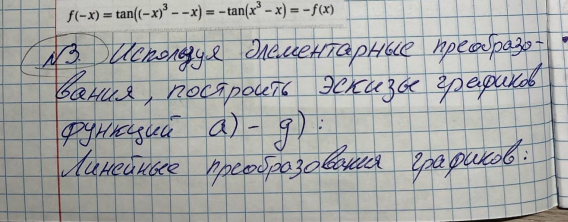 f(-x) = tan((-x)³ - -x) = -tan(x³ - x) = -f(x)
№3. Используя элементарные преобразо-
вания, построить эскизы графиков
функций а) - д):
Линейные преобразования графиков: